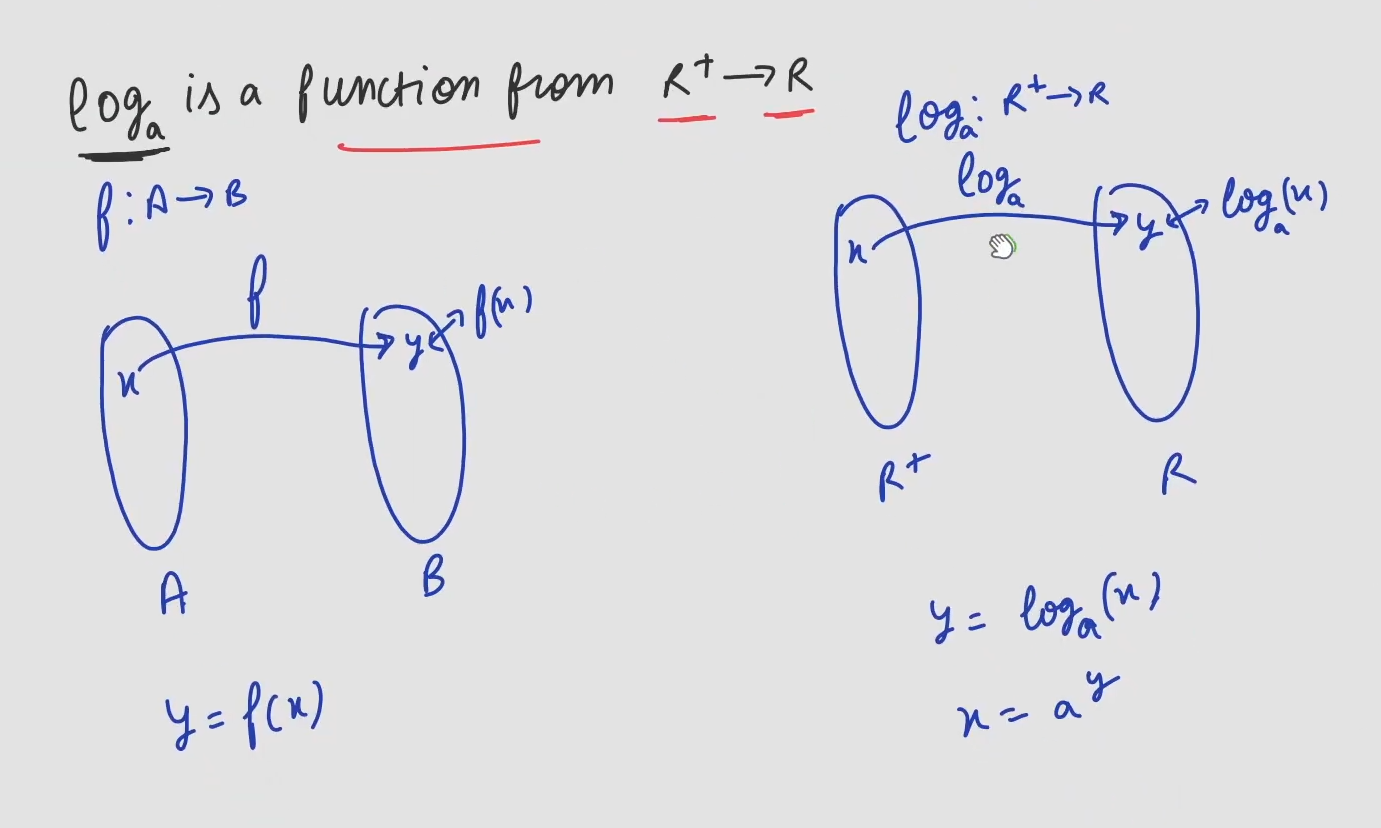 logₐ is a function from R⁺→R
f:A→B
f
x
y
f(x)
A
B
y=f(x)
logₐ: R⁺→R
logₐ
x
y
logₐ(x)
R⁺
R
y= logₐ(x)
x= aʸ